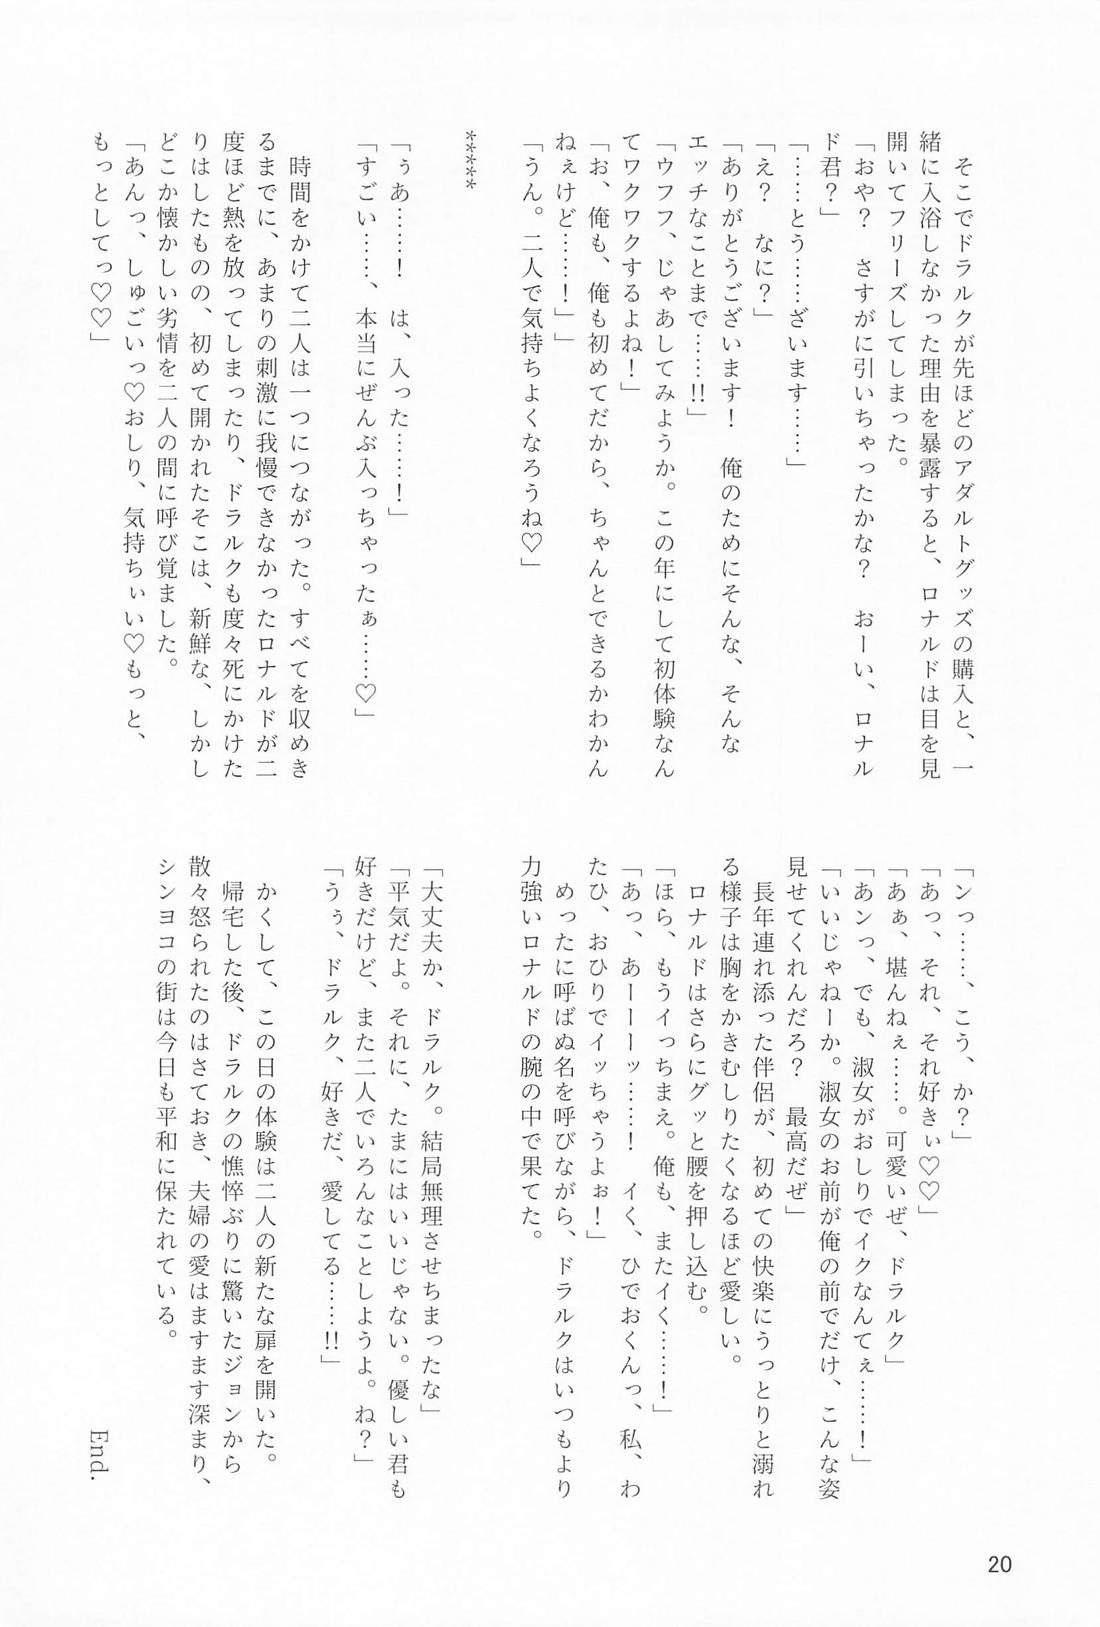 そこでドラルクが先ほどのアダルトグッズの購入と、一
緒に入浴しなかった理由を暴露すると、ロナルドは目を見
開いてフリーズしてしまった。
「おや？　さすがに引いちゃったかな？　おーい、ロナル
ド君？」
「……とう……ざいます……」
「え？　なに？」
「ありがとうございます！　俺のためにそんな、そんな
エッチなことまで……!!」
「ウフフ、じゃあしてみようか。この年にして初体験なん
てワクワクするよね！」
「お、俺も、俺も初めてだから、ちゃんとできるかわかん
ねぇけど……！」」
「うん。二人で気持ちよくなろうね♡」
*****
「ぅあ……！　は、入った……！」
「すごい……、本当にぜんぶ入っちゃったぁ……♡」
時間をかけて二人は一つにつながった。すべてを収めき
るまでに、あまりの刺激に我慢できなかったロナルドが二
度ほど熱を放ってしまったり、ドラルクも度々死にかけた
りはしたものの、初めて開かれたそこは、新鮮な、しかし
どこか懐かしい劣情を二人の間に呼び覚ました。
「あんっ、しゅごいっ♡おしり、気持ちぃい♡もっと、
もっとしてっ♡♡」
「ンっ……、こう、か？」
「あっ、それ、それ好きぃ♡♡」
「あぁ、堪んねぇ……。可愛いぜ、ドラルク」
「あンっ、でも、淑女がおしりでイクなんてぇ……！」
「いいじゃねーか。淑女のお前が俺の前でだけ、こんな姿
見せてくれんだろ？　最高だぜ」
長年連れ添った伴侶が、初めての快楽にうっとりと溺れ
る様子は胸をかきむしりたくなるほど愛しい。
ロナルドはさらにグッと腰を押し込む。
「ほら、もうイっちまえ。俺も、またイく……！」
「あっ、あーーーッ……！　イく、ひでおくんっ、私、わ
たひ、おひりでイッちゃうよぉ！」
めったに呼ばぬ名を呼びながら、ドラルクはいつもより
力強いロナルドの腕の中で果てた。
「大丈夫か、ドラルク。結局無理させちまったな」
「平気だよ。それに、たまにはいいじゃない。優しい君も
好きだけど、また二人でいろんなことしようよ。ね？」
「うぅ、ドラルク、好きだ、愛してる……!!」
かくして、この日の体験は二人の新たな扉を開いた。
帰宅した後、ドラルクの憔悴ぶりに驚いたジョンから
散々怒られたのはさておき、夫婦の愛はますます深まり、
シンヨコの街は今日も平和に保たれている。
End.
20